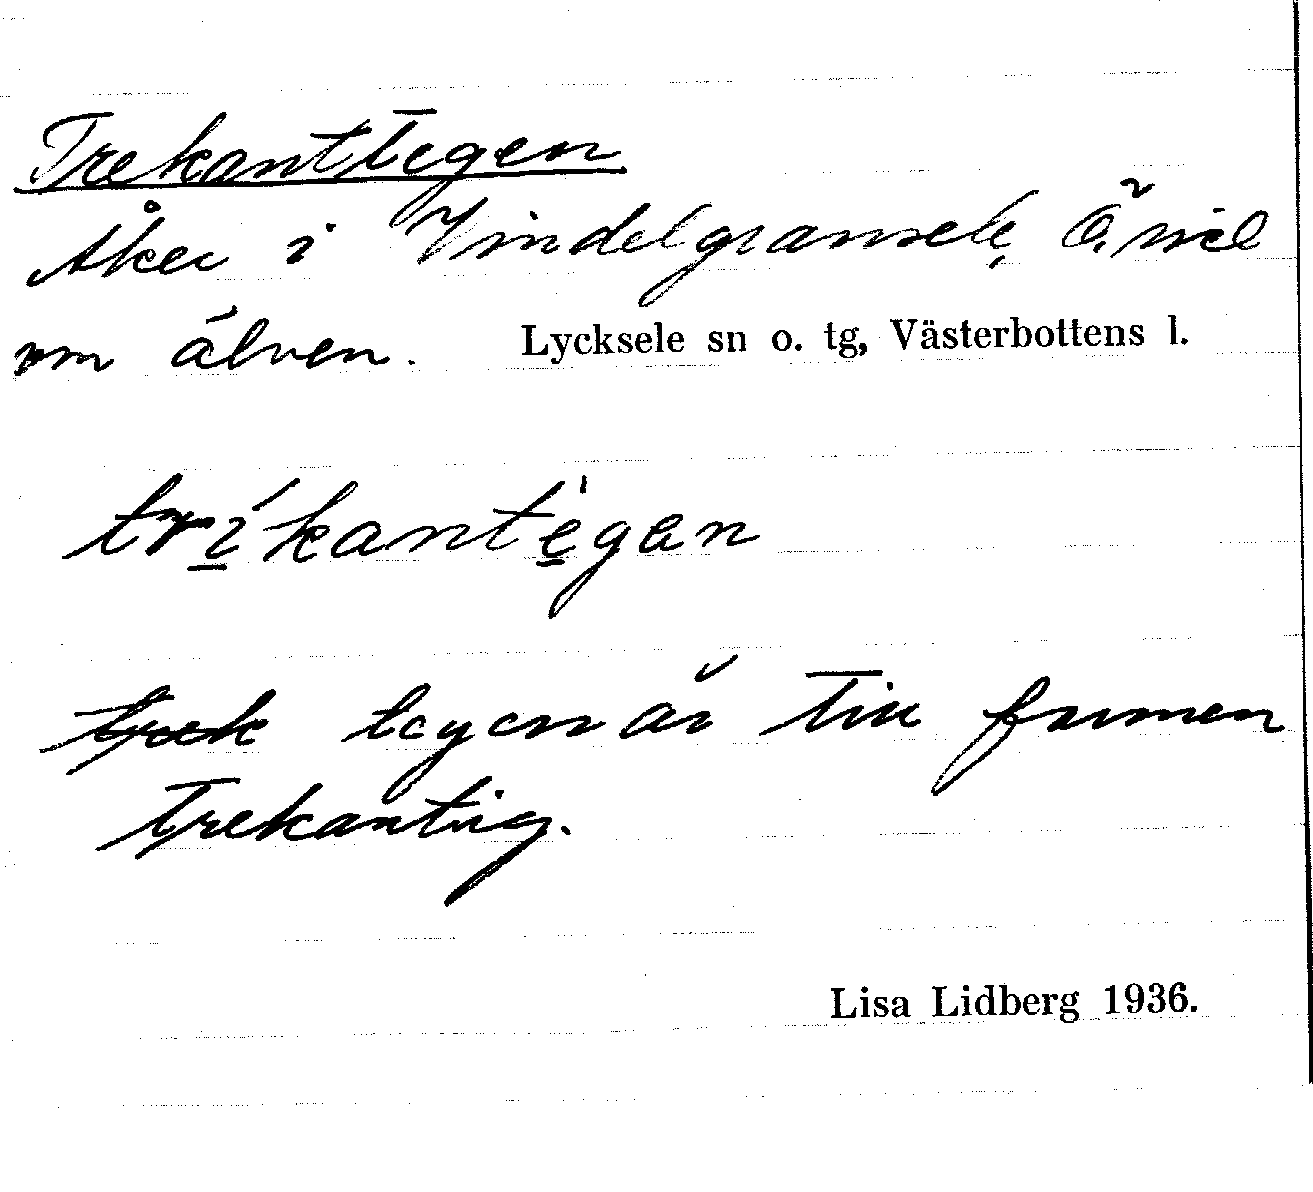 Trekanttegen
Åker i Vindelgransele, Ö. sid
om älven. Lycksele sn o. tg, Västerbottens l.
tríkantégen
tegen är till formen
trekantig.
Lisa Lidberg 1936.